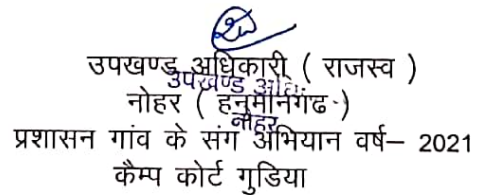 उपखण्ड अधिकारी ( राजस्व )
उपखण्ड अधि
नोहर ( हनुमानगढ )
नोहर
प्रशासन गांव के संग अभियान वर्ष– 2021
कैम्प कोर्ट गुडिया